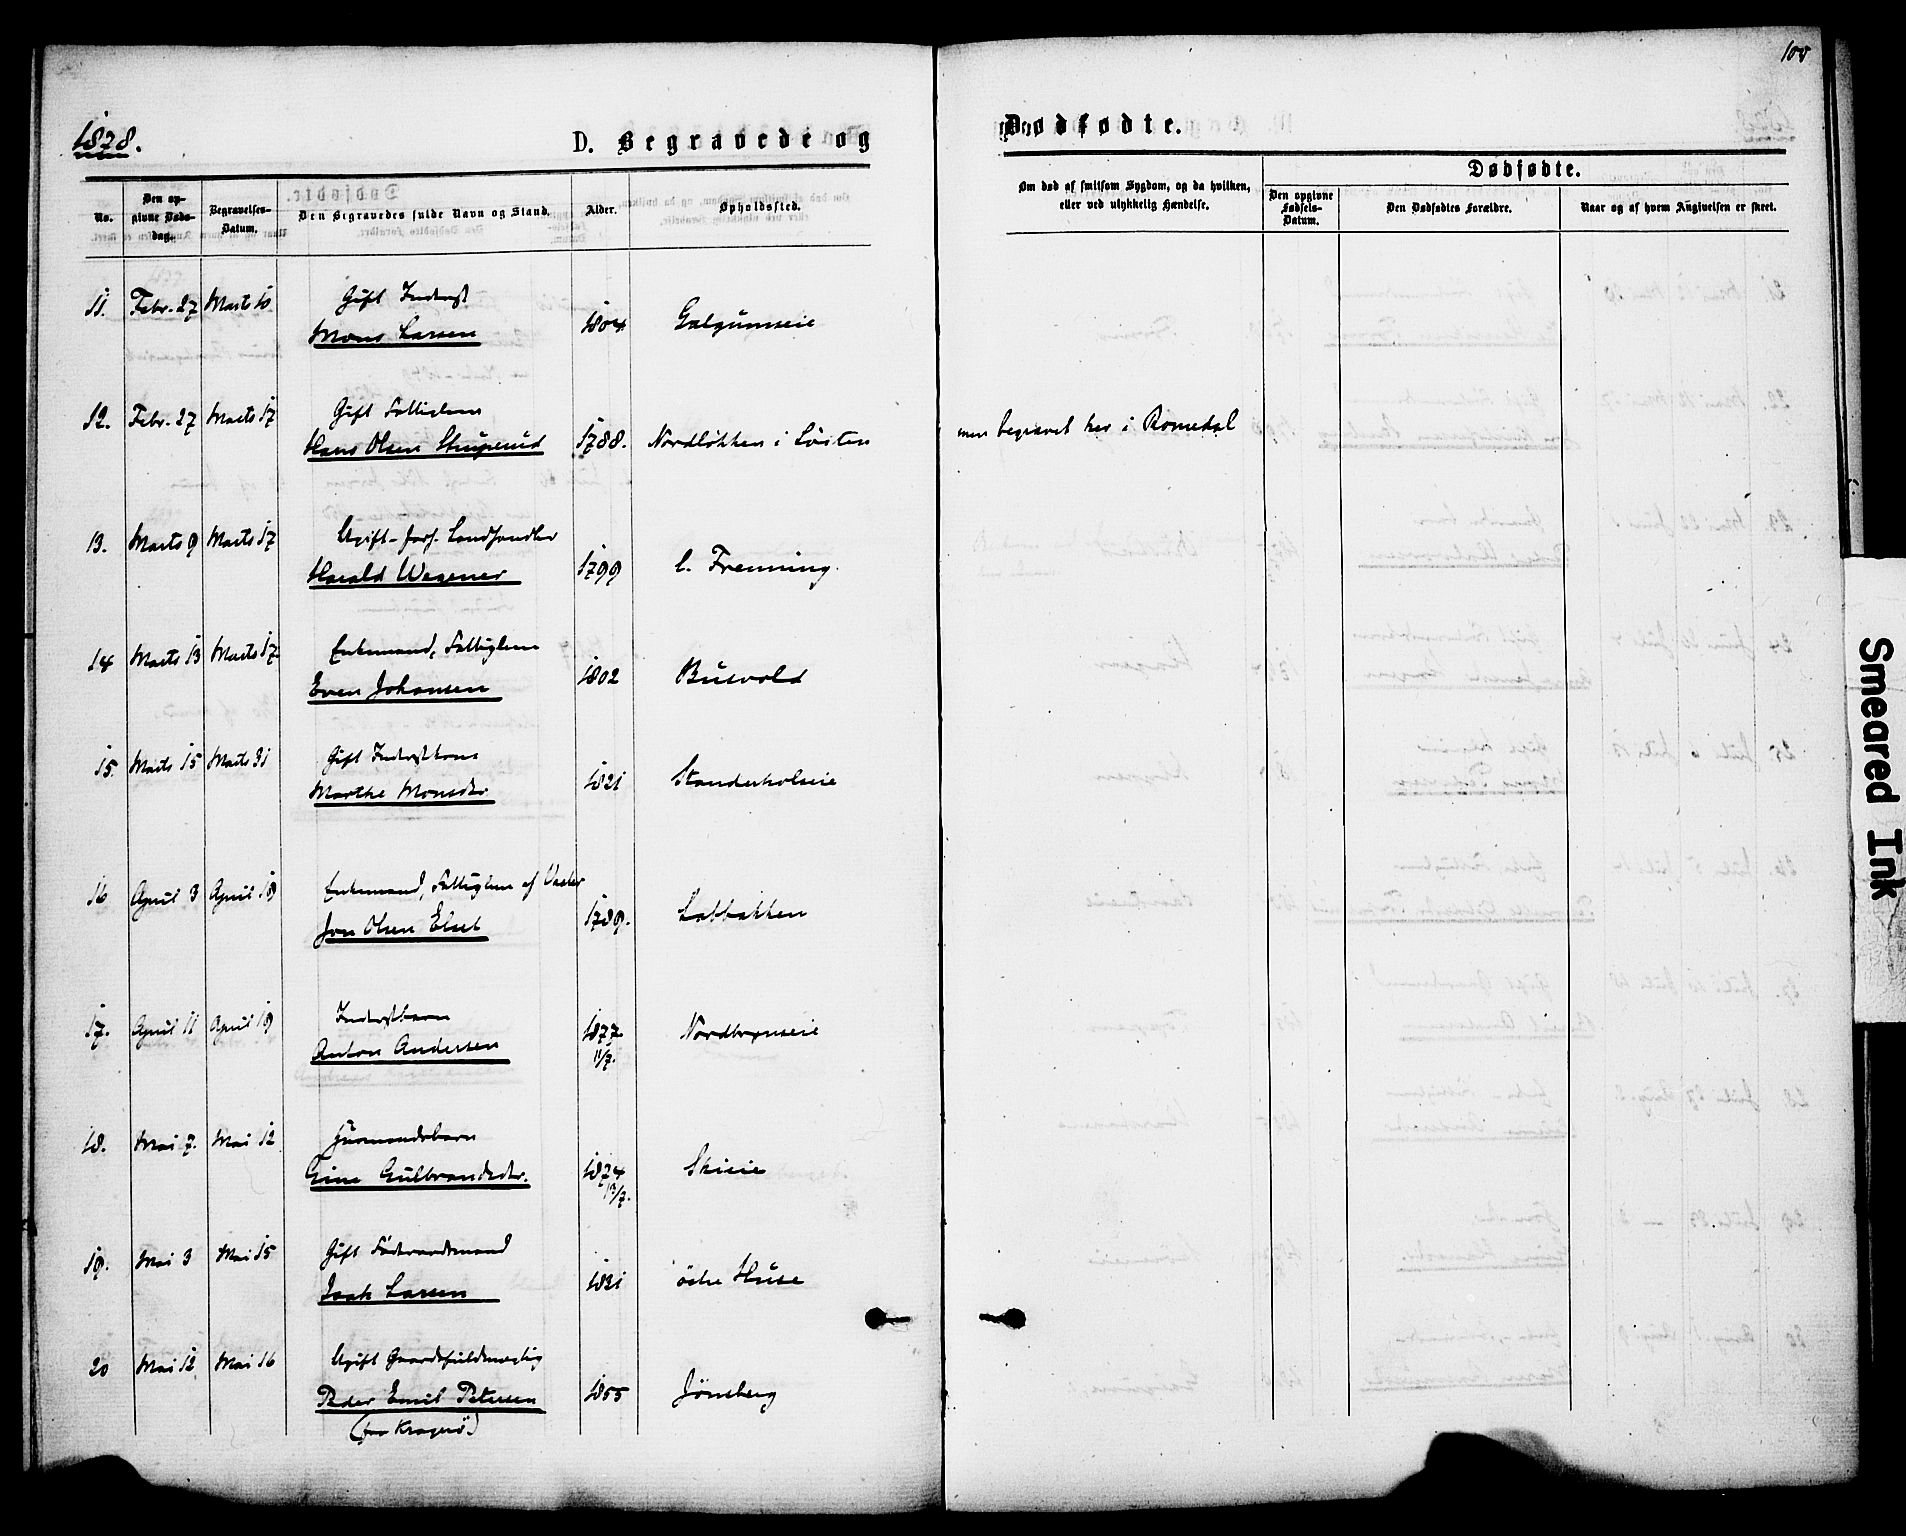 100
1878.
D. Begravede og
Dødfødte.
No.
Den op-
givne Døds-
dag.
Begravelses-
Datum.
Den Begravedes fulde Navn og Stand.
Alder.
Opholdssted.
Om død af smitsom Sygdom, og da hvilken,
eller ved ulykkelig Hændelse.
Dødfødte.
Den opgivne
Fødsels-
Datum.
Den Dødfødtes Forældre.
Naar og af hvem Angivelsen er skeet.
11. Febr. 27 Marts 10 Gift Inderst
Mons Larsen 1804 Galgumseie
12. Febr. 27 Marts 17 Gift Fattiglem
Hans Olsen Stuperud 1788. Nordløkken i Løiten men begravet her i Romedal
13. Marts 9 Marts 17 Ugift forh. Landhandler
Harald Wegener 1799 l. Frenning
14 Marts 13 Marts 17 Enkemand, Fattiglem
Even Johansen 1802 Busvold
15. Marts 15 Marts 31 Gift Inderstkone
Marthe Monsdtr. 1821 Standerholseie
16 April 3 April 18 Enkemand, Fattiglem af Vasler
Jon Olsen Elset 1789. Labbakken
17. April 11 April 19 Inderstbarn
Anton Andersen 1877
11/7. Nordbrynseie
18. Mai 7. Mai 12 Husmandsbarn
Gine Gulbrandsdtr. 1874
13/7. Skieie
19. Mai 3 Mai 15 Gift Føderaadsmand
Isak Larsen 1821 østre Huse
20 Mai 12 Mai 16 Ugift Gaardsfuldmægtig
Peder Emil Petersen 1855 Jønsberg
(fra Kragerø)
Smeared Ink